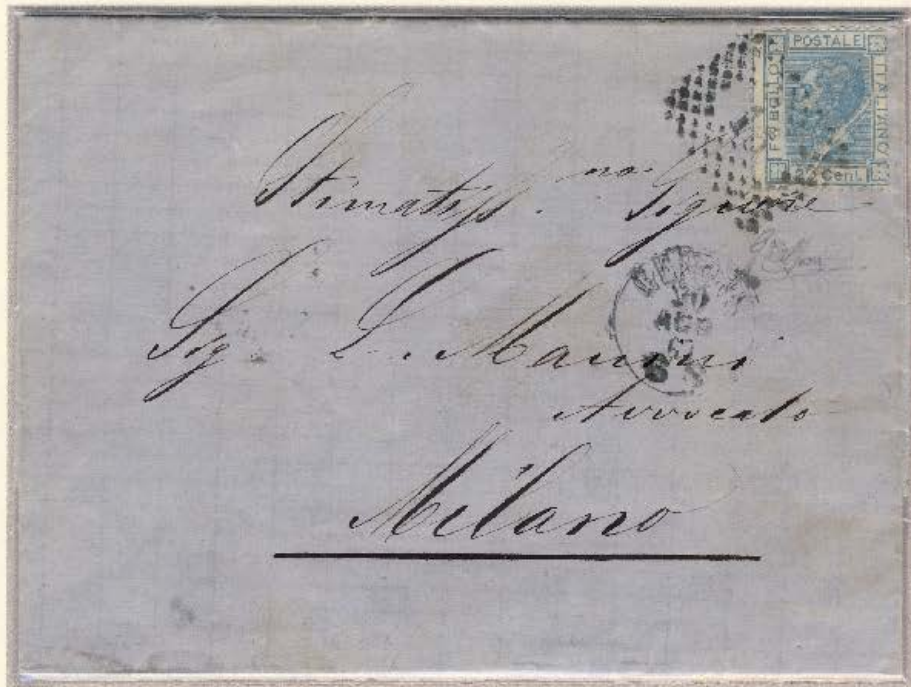 POSTALE
FCO BOLLO
ITALIANO
20 Cent.
Stimatiss.mo Signore
Sig. L. Mancini
Avvocato
Milano